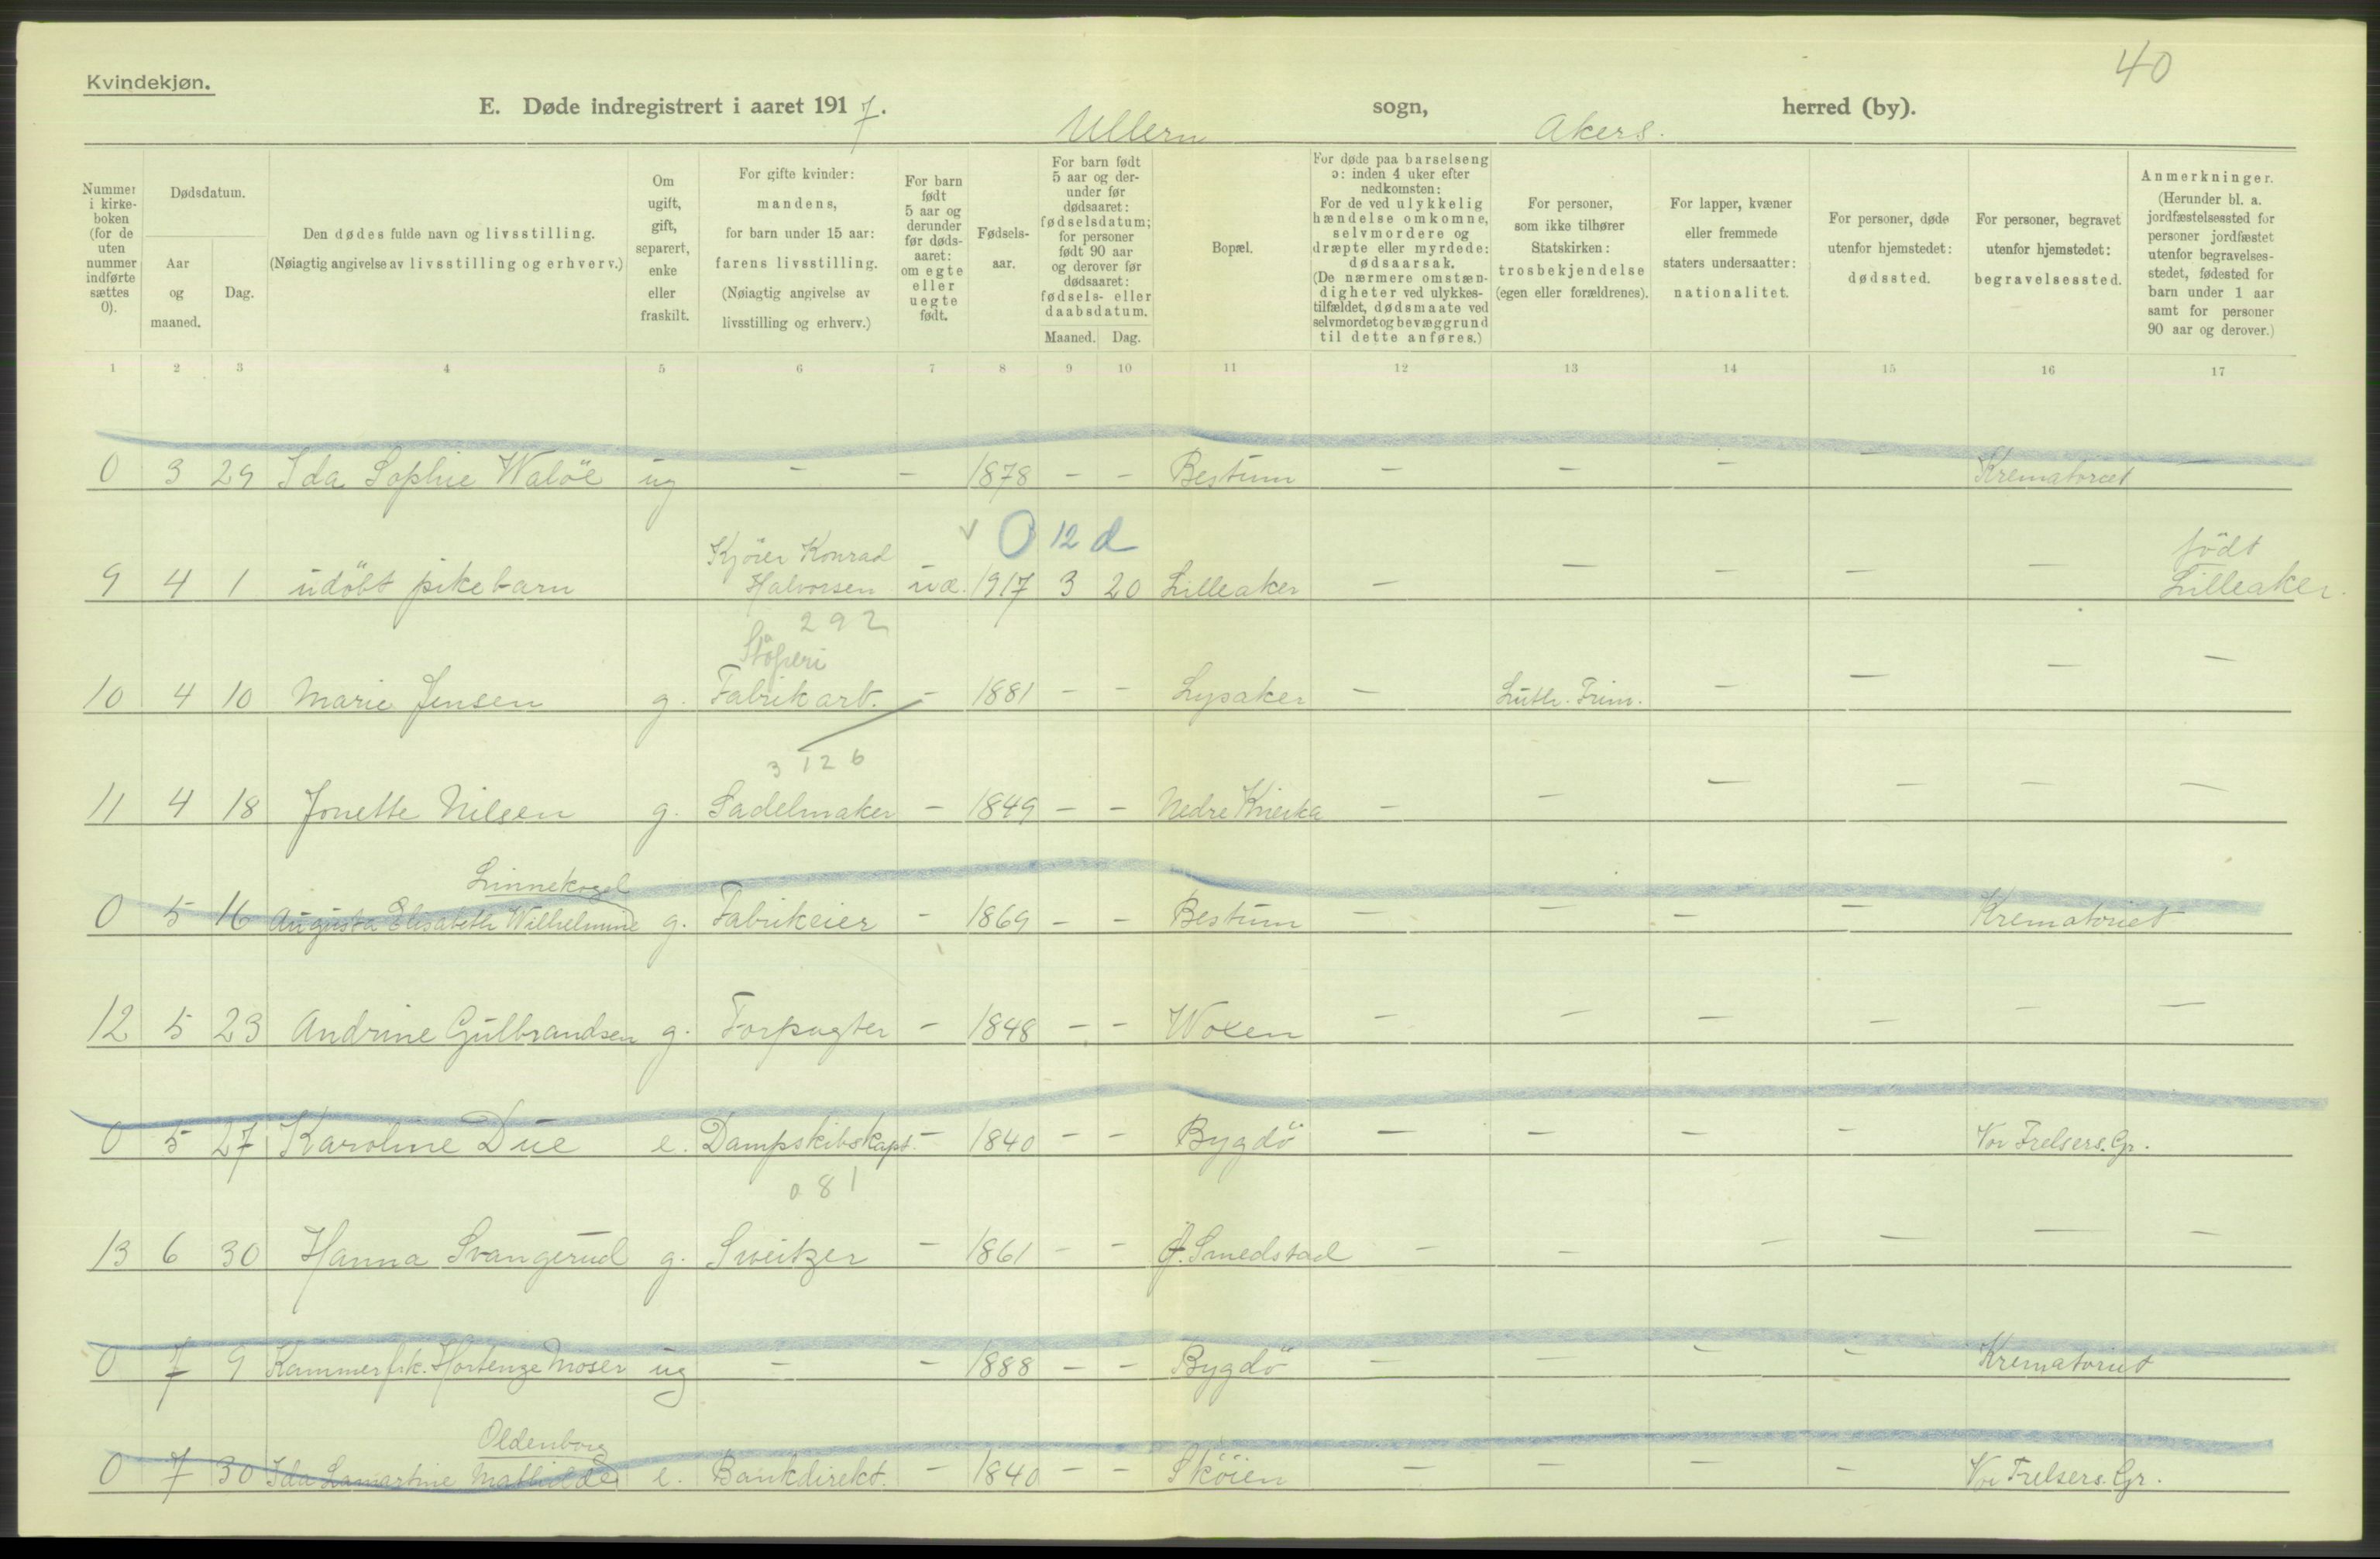 40
Kvindekjøn.
E. Døde indregistrert i aaret 1917. Ullern sogn, Akers. herred (by).
Nummer i kirke-boken (for de uten nummer indførte sættes 0).
Dødsdatum.
Aar og maaned.
Dag.
Den dødes fulde navn og livsstilling.
(Nøiagtig angivelse av livsstilling og erhverv.)
Om ugift, gift, separert, enke eller fraskilt.
For gifte kvinder: mandens, for barn under 15 aar: farens livsstilling. (Nøiagtig angivelse av livsstilling og erhverv.)
For barn født 5 aar og derunder før døds-aaret: om egte eller uegte født.
Fødsels-aar.
For barn født 5 aar og der-under før dødsaaret: fødselsdatum; for personer født 90 aar og derover før dødsaaret: fødsels- eller daabsdatum.
Maaned. Dag.
Bopæl.
For døde paa barselseng ɔ: inden 4 uker efter nedkomsten: For de ved ulykkelig hændelse omkomne, selvmordere og dræpte eller myrdede: dødsaarsak. (De nærmere omstæn-digheter ved ulykkes-tilfældet, dødsmaate ved selvmordet og bevæggrund til dette anføres.)
For personer, som ikke tilhører Statskirken: trosbekjendelse (egen eller forældrenes).
For lapper, kvæner eller fremmede staters undersaatter: nationalitet.
For personer, døde utenfor hjemstedet: dødssted.
For personer, begravet utenfor hjemstedet: begravelsessted.
Anmerkninger. (Herunder bl. a. jordfæstelsessted for personer jordfæstet utenfor begravelses-stedet, fødested for barn under 1 aar samt for personer 90 aar og derover.)
1 2 3 4 5 6 7 8 9 10 11 12 13 14 15 16 17
0 3 29 Ida Sophie Waløe ug - - 1878 - - Bestum - - - - Krematoriet -
v 0 12 d
Kjörer Konrad født
9 4 1 udöbt pikebarn Halvorsen 1917 3 20 Lilleaker - - - - - Lilleaker.
292
Støperi
10 4 10 Marie Jensen g. Fabrikarb. - 1881 - - Lysaker - Luth. Frim. - - - -
3 126
11 4 18 Jonette Nilsen g. Sadelmaker - 1849 - - Nedre - - - - - -
Linnekogel
0 5 16 Augusta Elisabeth Wilhelmine g. Fabrikeier - 1869 - - Bestum - - - - Krematoriet
12 5 23 Andrine Gulbrandsen g. Forpagter - 1848 - - Woxen - - - - - -
0 5 27 Karoline Due e. Dampskibskapt. - 1840 - - Bygdö - - - - Vor Frelsers. Gr.
081
13 6 30 Hanna Svangerud g. Sveitzer - 1861 - - Ø. Smedstad - - - - - -
0 7 9 Kammerfrk. Hortenze Moser ug - - 1888 - - Bygdö - - - - Krematoriet
Oldenborg
0 7 30 Ida Lamartine Mathilde e. Bankdirekt. - 1840 - - Sköien - - - - Vor Frelsers. Gr.